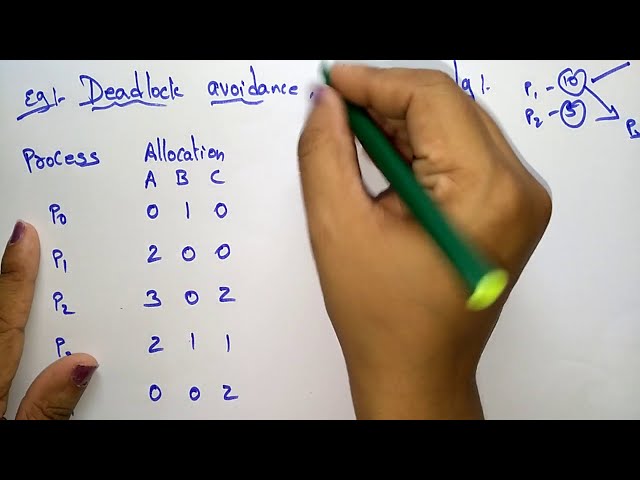 Eg:- Deadlock avoidance
P1 - 10
P2 - 5
Process Allocation
A B C
P0 0 1 0
P1 2 0 0
P2 3 0 2
2 1 1
0 0 2